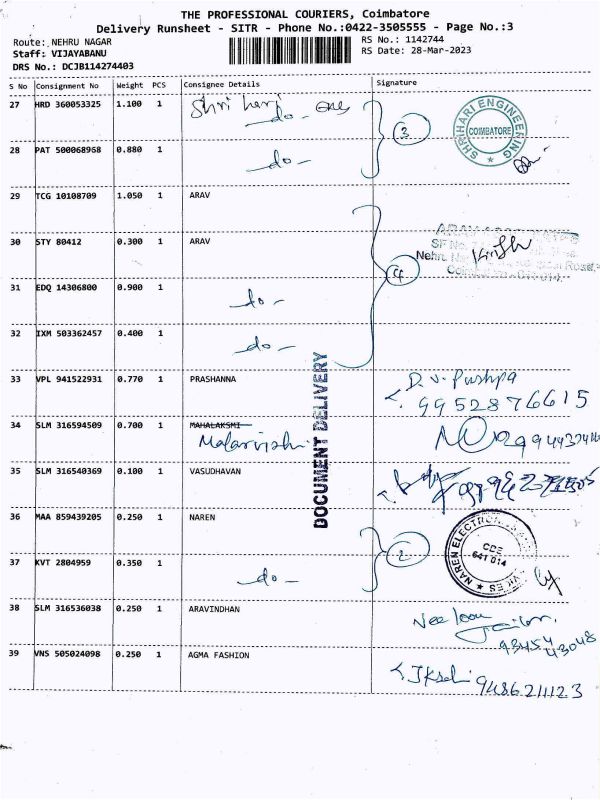 THE PROFESSIONAL COURIERS, Coimbatore
Delivery Runsheet - SITR - Phone No.:0422-3505555 - Page No.:3
Route: NEHRU NAGAR
RS No.: 1142744
Staff: VIJAYABANU
RS Date: 28-Mar-2023
DRS No.: DCJB114274403
S No Consignment No Weight PCS Consignee Details Signature
27 HRD 360053325 1.100 1 Shri hari
do
3
SHRI HARI ENGINEERING
COIMBATORE
28 PAT 500068968 0.880 1 do
29 TCG 10108709 1.050 1 ARAV
30 STY 80412 0.300 1 ARAV
4
31 EDQ 14306800 0.900 1 do
32 IXM 503362457 0.400 1 do
DOCUMENT DELIVERY
33 VPL 941522931 0.770 1 PRASHANNA
D.V. Pushpa
9952876615
34 SLM 316594509 0.700 1 MAHALAKSMI
Malarvizhi
35 SLM 316540369 0.100 1 VASUDHAVAN
36 MAA 859439205 0.250 1 NAREN
2
NAREN ELECTRONICS
CBE
641 014
37 KVT 2804959 0.350 1 do
38 SLM 316536038 0.250 1 ARAVINDHAN
93454
43048
39 VNS 505024098 0.250 1 AGMA FASHION
9486211123